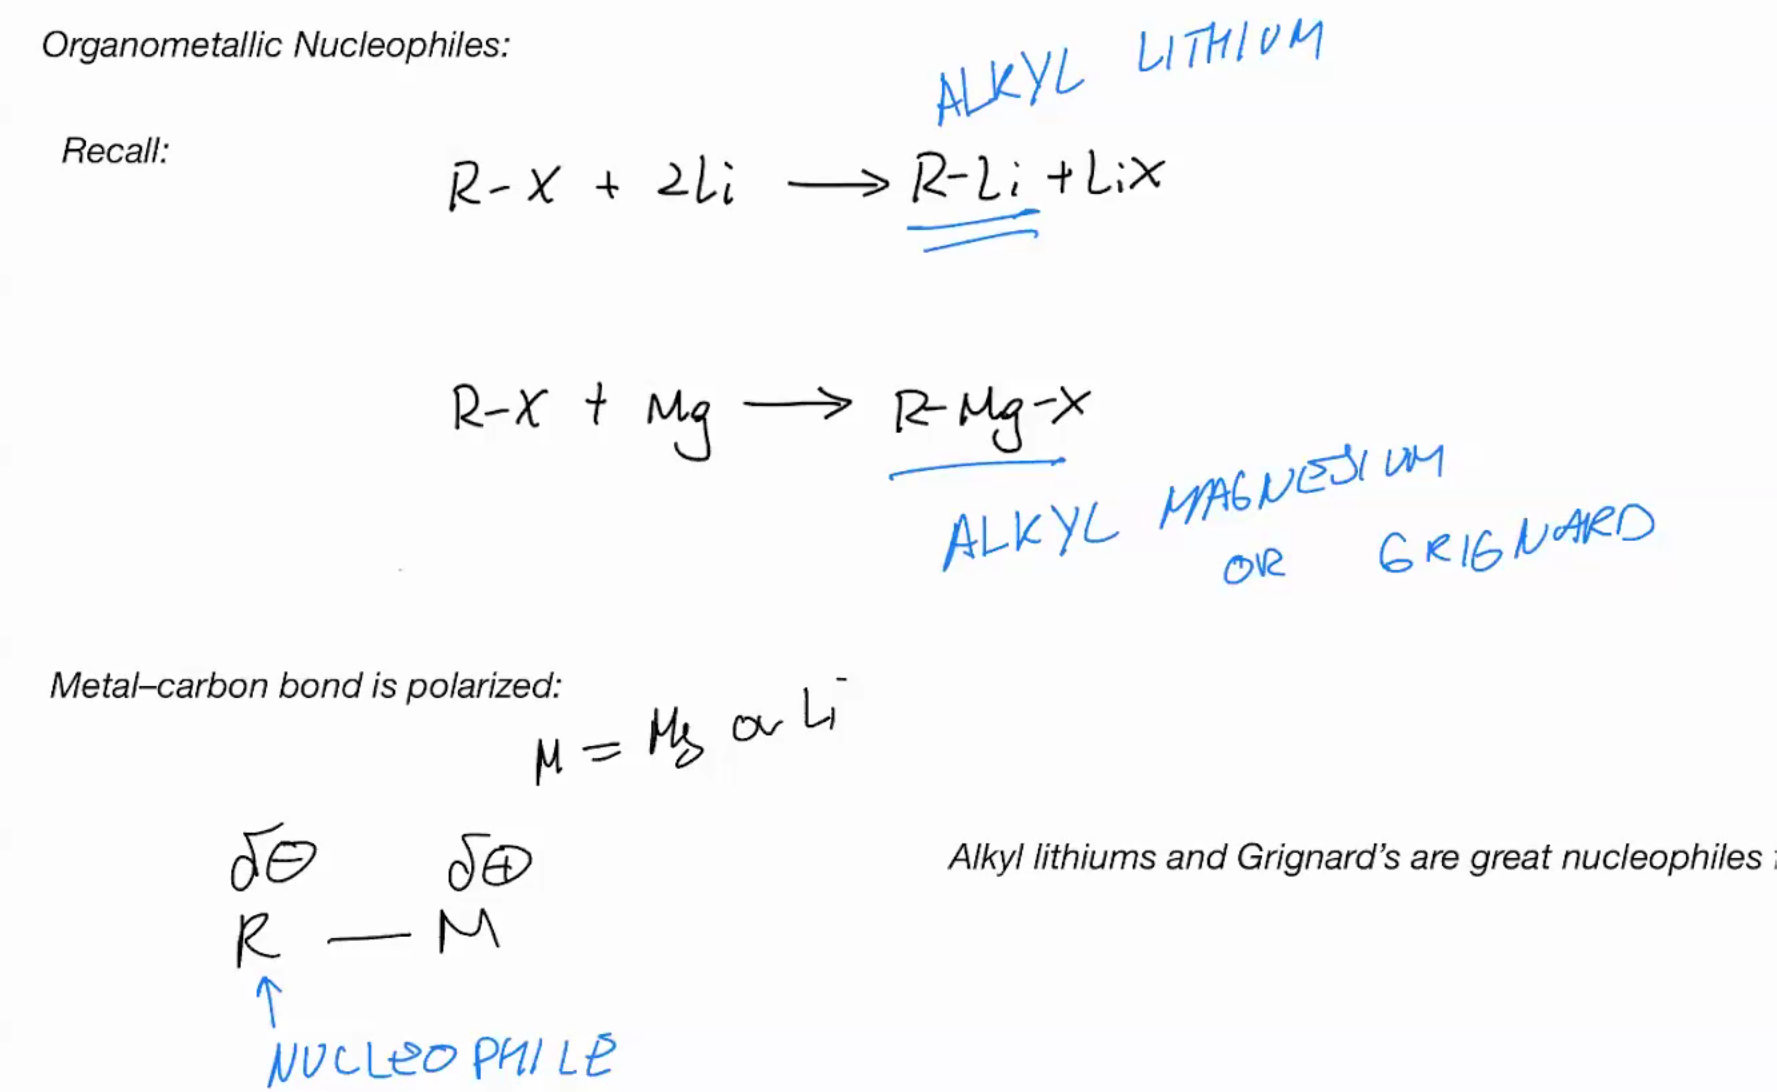 Organometallic Nucleophiles:
ALKYL LITHIUM
Recall:
R-X + 2Li ⟶ R-Li + LiX
R-X + Mg ⟶ R-Mg-X
ALKYL MAGNESIUM
OR GRIGNARD
Metal–carbon bond is polarized:
M = Mg or Li
δ⊖ δ⊕
Alkyl lithiums and Grignard's are great nucleophiles
R — M
↑
NUCLEOPHILE